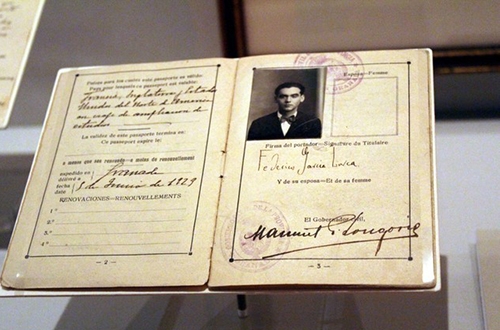 Países para los cuales este pasaporte es válido:
Pays pour lesquels ce passeport est valable:
Francia, Inglaterra y Estados
Unidos del Norte de America
en viaje de ampliacion de
estudios
La validez de este pasaporte termina en:
Ce passeport expire le:
a menos que sea renovado — a moins de renouvellement
expedido en
délivré à
Granada
fecha
date
5 de Junio de 1929
RENOVACIONES — RENOUVELLEMENTS
1.º
2.º
3.º
4.º
— 2 —
Esposa — Femme
Firma del portador — Signature du Titulaire
Federico García Lorca
Y de su esposa — Et de sa femme
El Gobernador civil,
Manuel
— 3 —